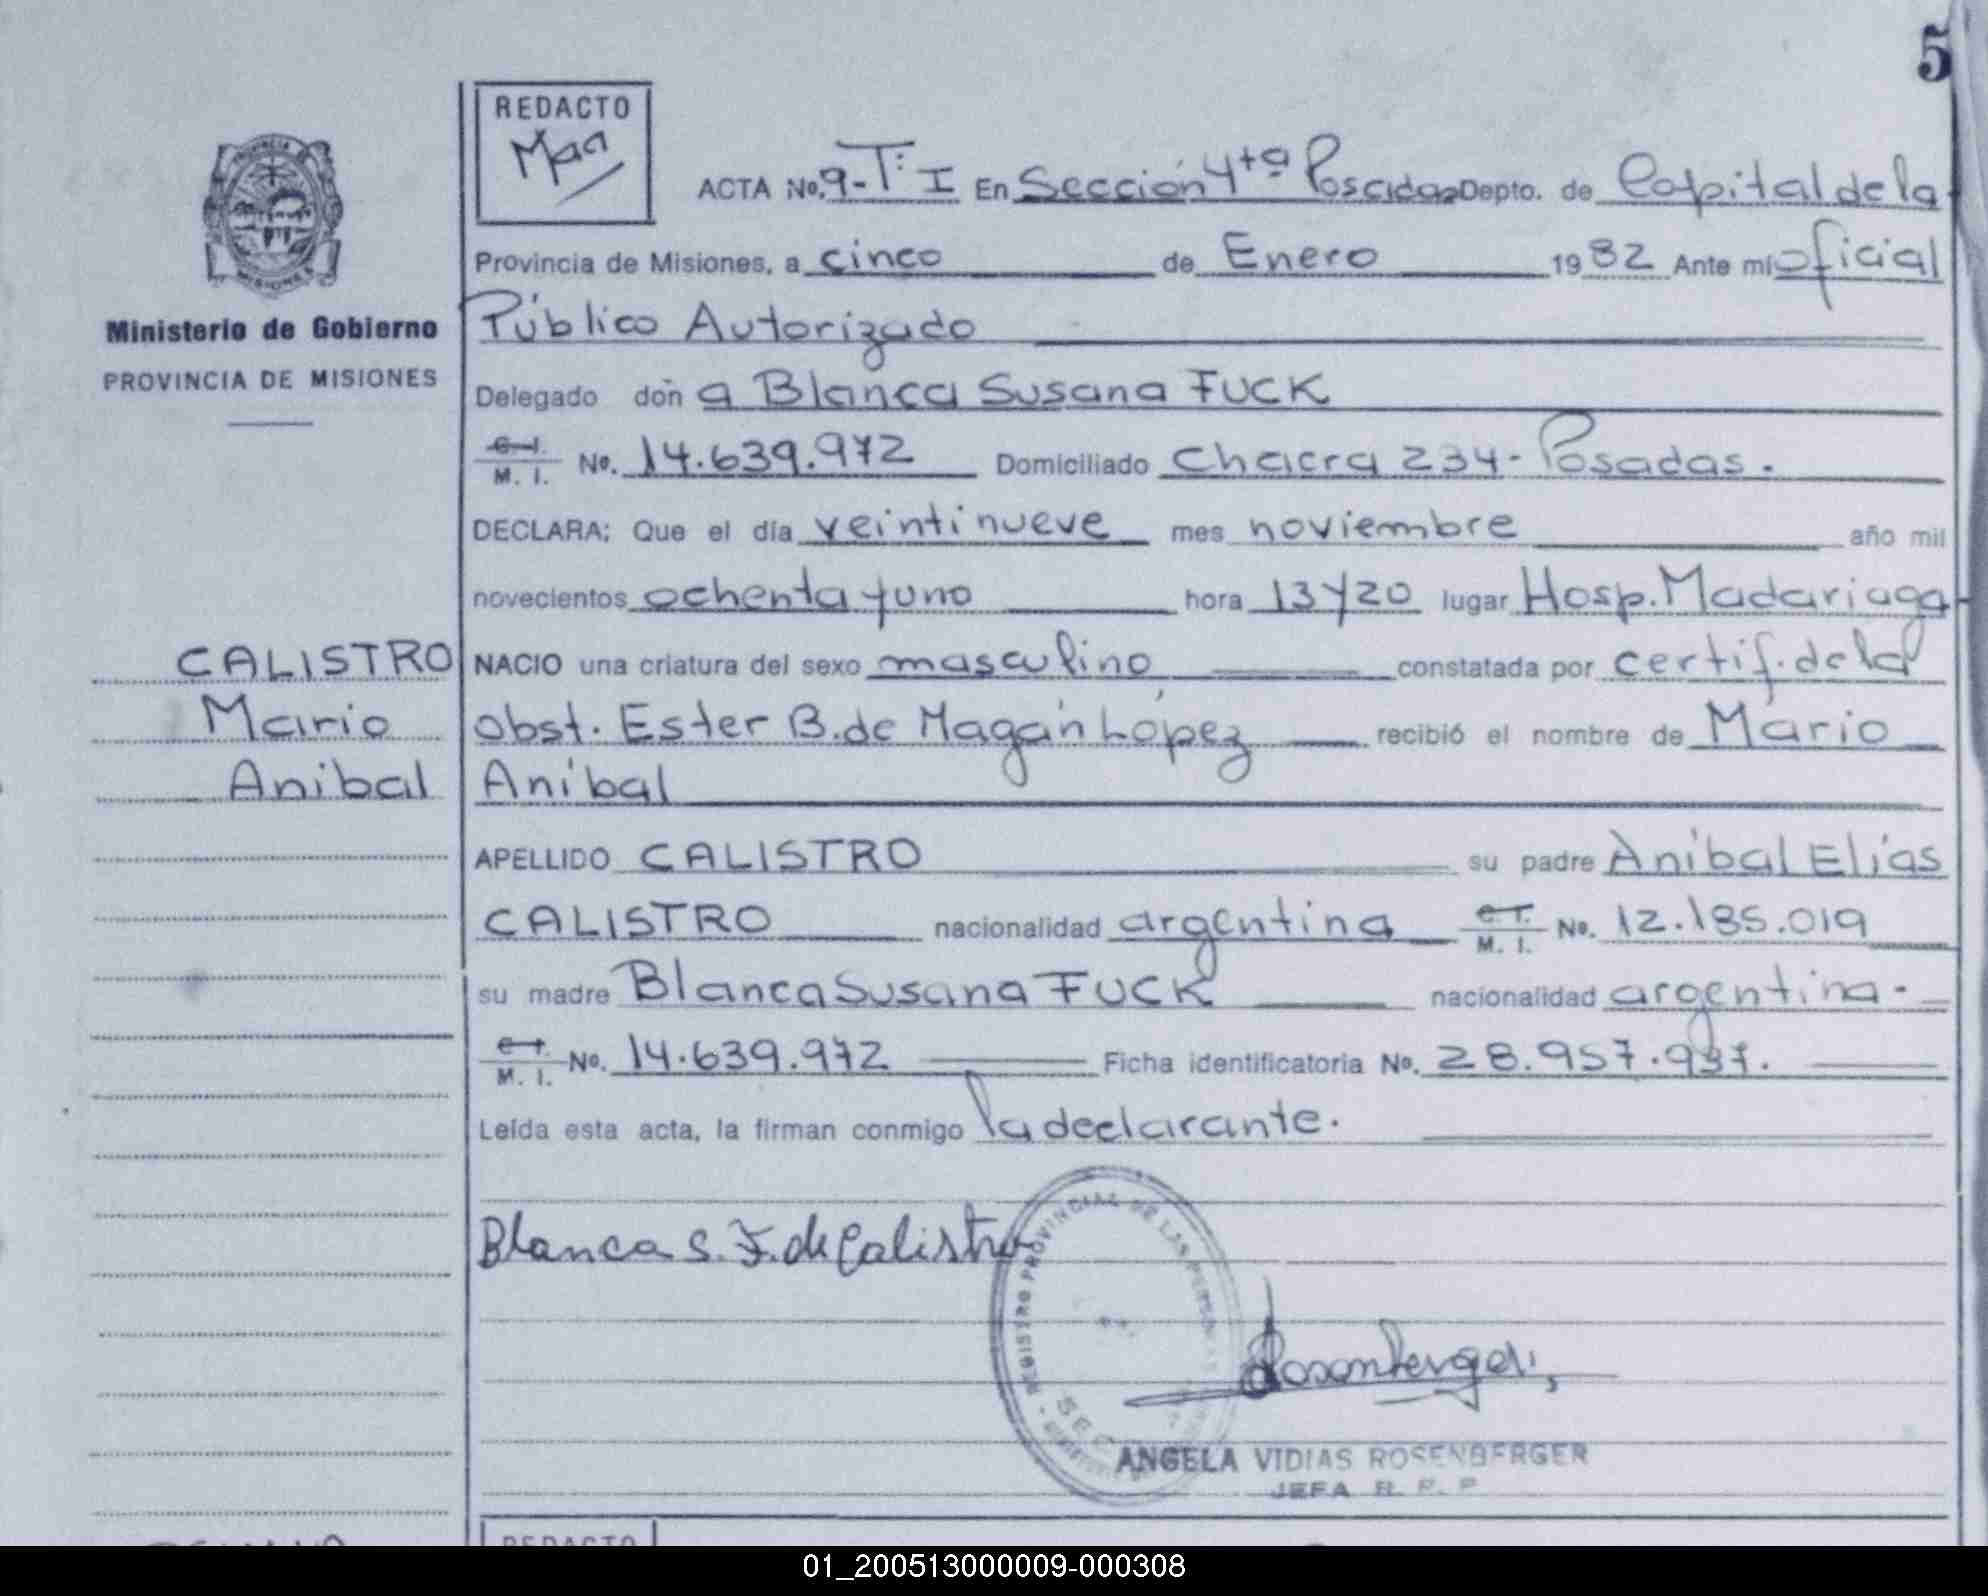 5
REDACTO
Maa
ACTA No. 9-Tº I En Sección 4ta Posadas Depto. de Capital de la
Provincia de Misiones, a cinco de Enero 1982 Ante mi Oficial
Público Autorizado
Ministerio de Gobierno
PROVINCIA DE MISIONES
Delegado don a Blanca Susana FUCK
C. I. M. I. No. 14.639.972 Domiciliado Chacra 234 - Posadas.
DECLARA: Que el día veintinueve mes noviembre año mil
novecientos ochenta y uno hora 13 y 20 lugar Hosp. Madariaga
CALISTRO
Mario
Anibal
NACIO una criatura del sexo masculino constatada por certif. de la
obst. Ester B. de Magán López recibió el nombre de Mario
Aníbal
APELLIDO CALISTRO su padre Aníbal Elías
CALISTRO nacionalidad argentina C. I. M. I. No. 12.185.019
su madre Blanca Susana FUCK nacionalidad argentina.
C. I. M. I. No. 14.639.972 Ficha identificatoria No. 28.957.937.
Leída esta acta, la firman conmigo la declarante.
Blanca S. F. de Calistro
REGISTRO PROVINCIAL DE LAS PERSONAS
SEC
Rosenberger
ANGELA VIDIAS ROSENBERGER
JEFA R. P. P
REDACTO
01_200513000009-000308